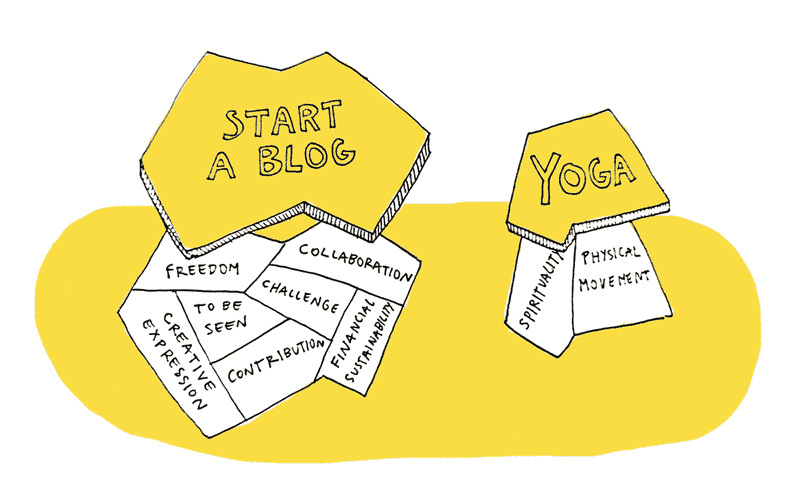 START
A BLOG
FREEDOM
COLLABORATION
TO BE
SEEN
CHALLENGE
CREATIVE
EXPRESSION
CONTRIBUTION
FINANCIAL
SUSTAINABILITY
YOGA
SPIRITUALITY
PHYSICAL
MOVEMENT